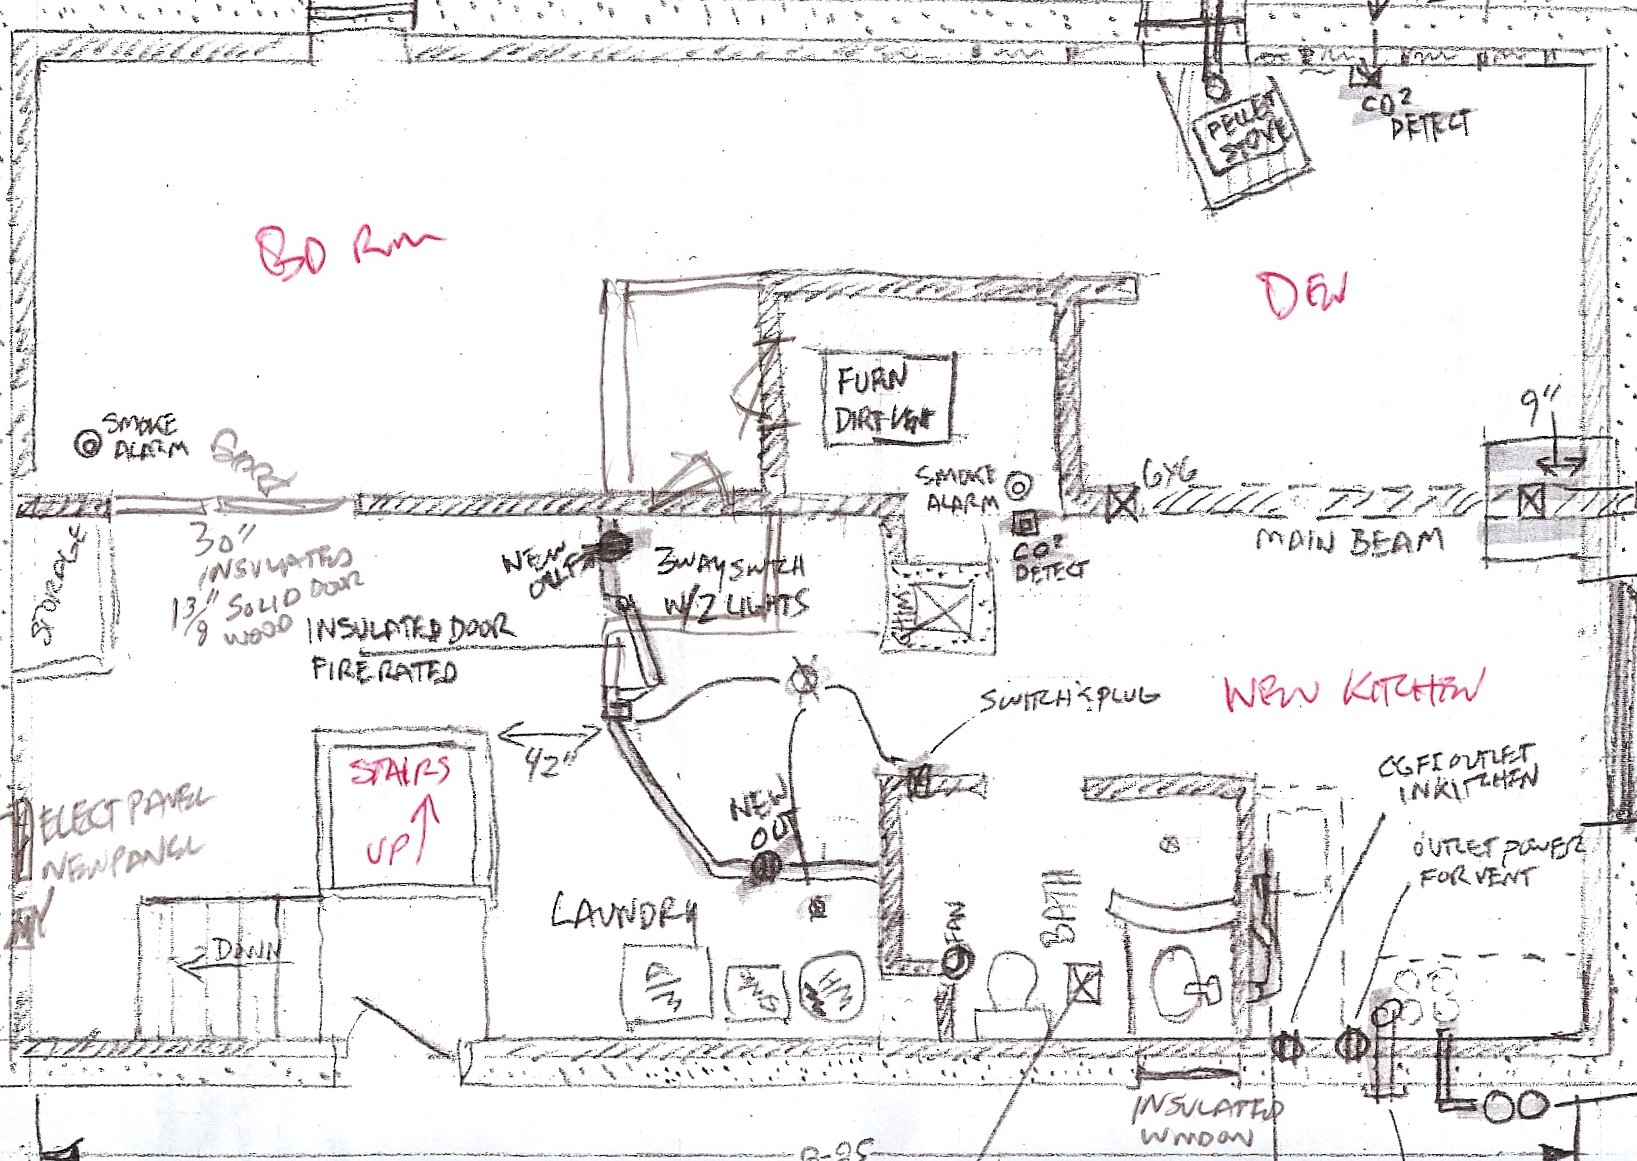 PELLET
STOVE
CO²
DETECT
BD Rm
DEN
FURN
9"
SMOKE
ALARM
SMOKE
ALARM
6x6
CO²
DETECT
MAIN BEAM
STORAGE
30"
INSULATED
1 3/8" SOLID DOOR
WOOD
NEW
3WAY SWITCH
W/2 LIGHTS
SHIM
INSULATED DOOR
FIRE RATED
SWITCH & PLUG
NEW KITCHEN
42"
STAIRS
UP
ELECT PANEL
NEW PANEL
NEW
OUT
CGFI OUTLET
IN KITCHEN
OUTLET POWER
FOR VENT
LAUNDRY
FAN
BATH
DOWN
INSULATED
WINDOW